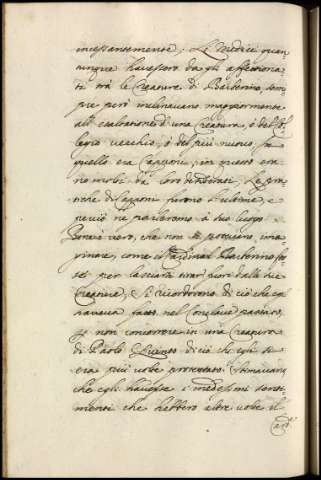 incessantemente; Le Medice quan-
tunque havessero da gli affettiona-
ti trà le Creature di Barberino, sem-
pre però inclinavano maggiormente
all'esaltatione d'una Creatura, ò del Col-
legio vecchio, ò del più nuovo, se
quello era Capponi, in questo era-
no molti da loro desiderati. Le pra-
tiche di Capponi furono l'ultime, e
perciò ne parleremo à suo luogo.
Bene è vero, che non si potevano ima-
ginare, come il Cardinal Barberino fos-
se per lasciarsi tirar fuori dalle sue
Creature; Si ricordorono di ciò che egl
haveva fatto nel Conclave passato,
p non concorrere in una Creatura
di Paolo Quinto di ciò che egli si
era più volte protestato. Stimavano
che egli havesse i medesimi senti-
menti che hebbero altre volte il
Card.